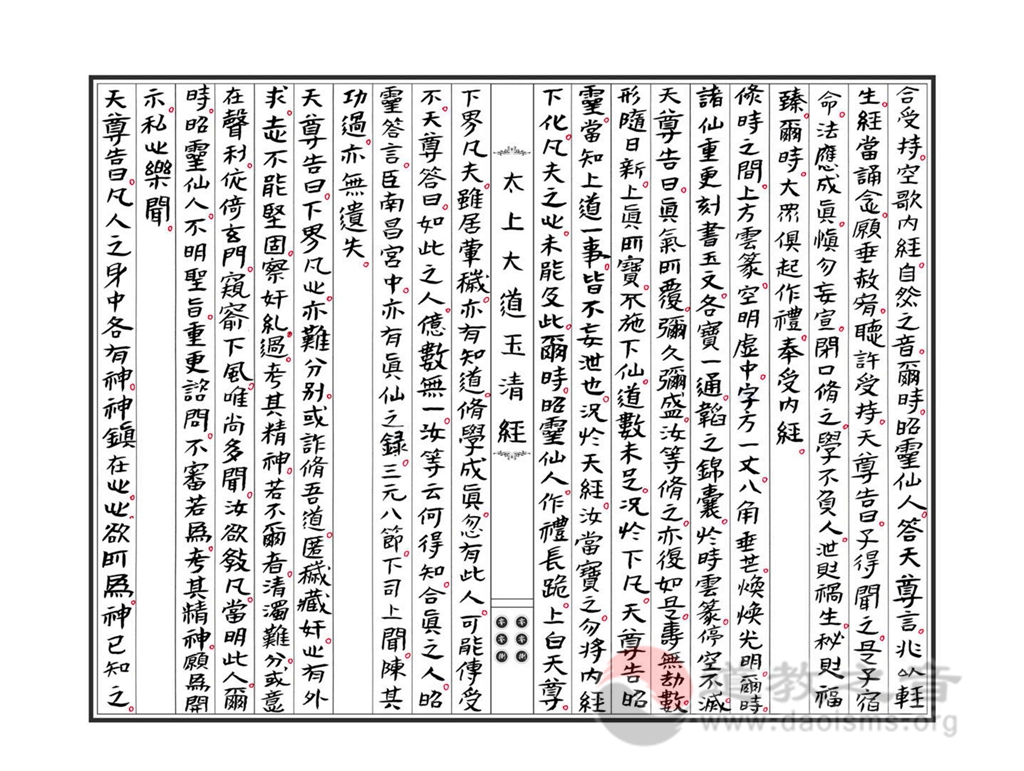 合受持。空歌内經。自然之音。爾時。昭靈仙人。答天尊言。兆以輕
生。經當誦念。願垂赦宥。聽許受持。天尊告曰。子得聞之。是子宿
命。法應成眞。愼勿妄宣。閉口脩之。學不負人。泄則禍生。秘則福
臻。爾時。大眾俱起作禮。奉受内經。
倏時之間。上方雲篆。空明虛中。字方一丈。八角垂芒。煥煥光明。爾時
諸仙重更刻書玉文。各寶一通。韜之錦囊。於時雲篆停空不滅
天尊告曰。眞氣所覆。彌久彌盛。汝等脩之。亦復如是。壽無劫數。
形隨日新。上眞所寶。不施下仙。道數未足。況於下凡。天尊告昭
靈。當知上道一事。皆不妄泄也。況於天經。汝當寶之。勿將内經
下化。凡夫之心。未能及此。爾時。昭靈仙人。作禮長跪。上白天尊。
太上大道玉清經
下界凡夫。雖居葷穢。亦有知道。脩學成眞。忽有此人。可能傳受
不。天尊答曰。如此之人。億數無一。汝等云何得知。合眞之人。昭
靈答言。臣南昌宮中。亦有眞仙之錄。三元八節。下司上聞。陳其
功過。亦無遺失。
天尊告曰。下界凡心。亦難分別。或詐脩吾道。匿穢藏奸。心有外
求。志不能堅固。察奸糺過。考其精神。若不爾者。清濁難分。或意
在聲利。依倚玄門。窺窬下風。唯尚多聞。汝欲敎凡。當明此人。爾
時。昭靈仙人。不明聖旨。重更諮問。不審若爲。考其精神。願爲開
示。私心樂聞。
天尊告曰。凡人之身中。各有神。神鎮在心。心欲所爲。神已知之。
道教之音
www.daoisms.org